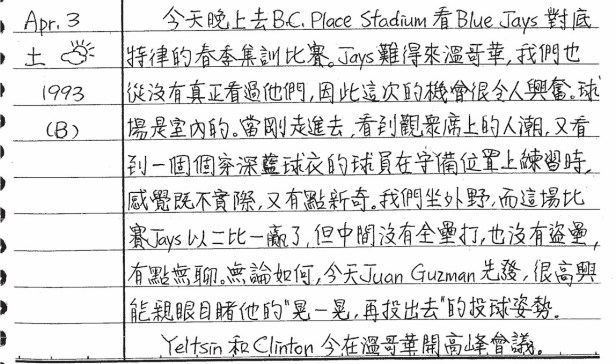 Apr. 3 今天晚上去B.C. Place Stadium 看Blue Jays 對底
土 特律的春季集訓比賽。Jays 難得來溫哥華,我們也
1993 從沒有真正看過他們,因此這次的機會很令人興奮。球
(B) 場是室內的。當剛走進去,看到觀眾席上的人潮,又看
到一個個穿深藍球衣的球員在守備位置上練習時,
感覺既不實際,又有點新奇。我們坐外野,而這場比
賽Jays 以二比一贏了,但中間沒有全壘打,也沒有盜壘,
有點無聊。無論如何,今天Juan Guzman 先發,很高興
能親眼目睹他的"晃一晃,再投出去"的投球姿勢.
Yeltsin 和Clinton 今在溫哥華開高峰會議。